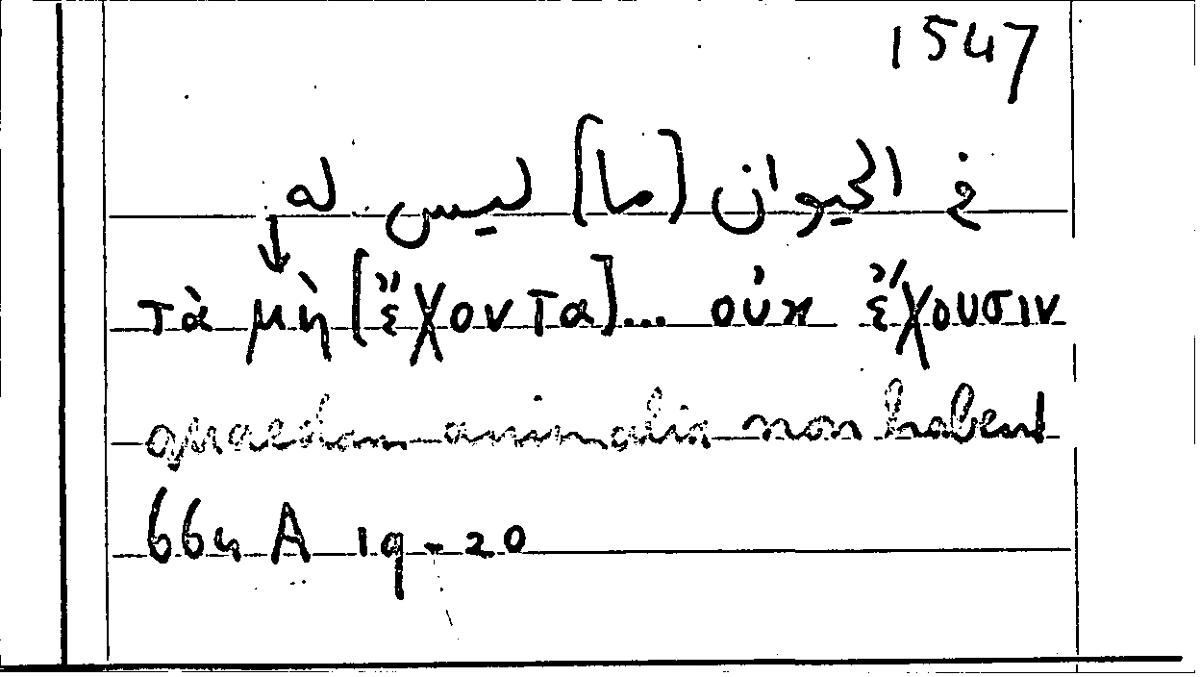 1547
في الحيوان [ما] ليس له
τὰ μὴ [ἔχοντα]... οὐκ ἔχουσιν
quaedam animalia non habent
664 A 19-20